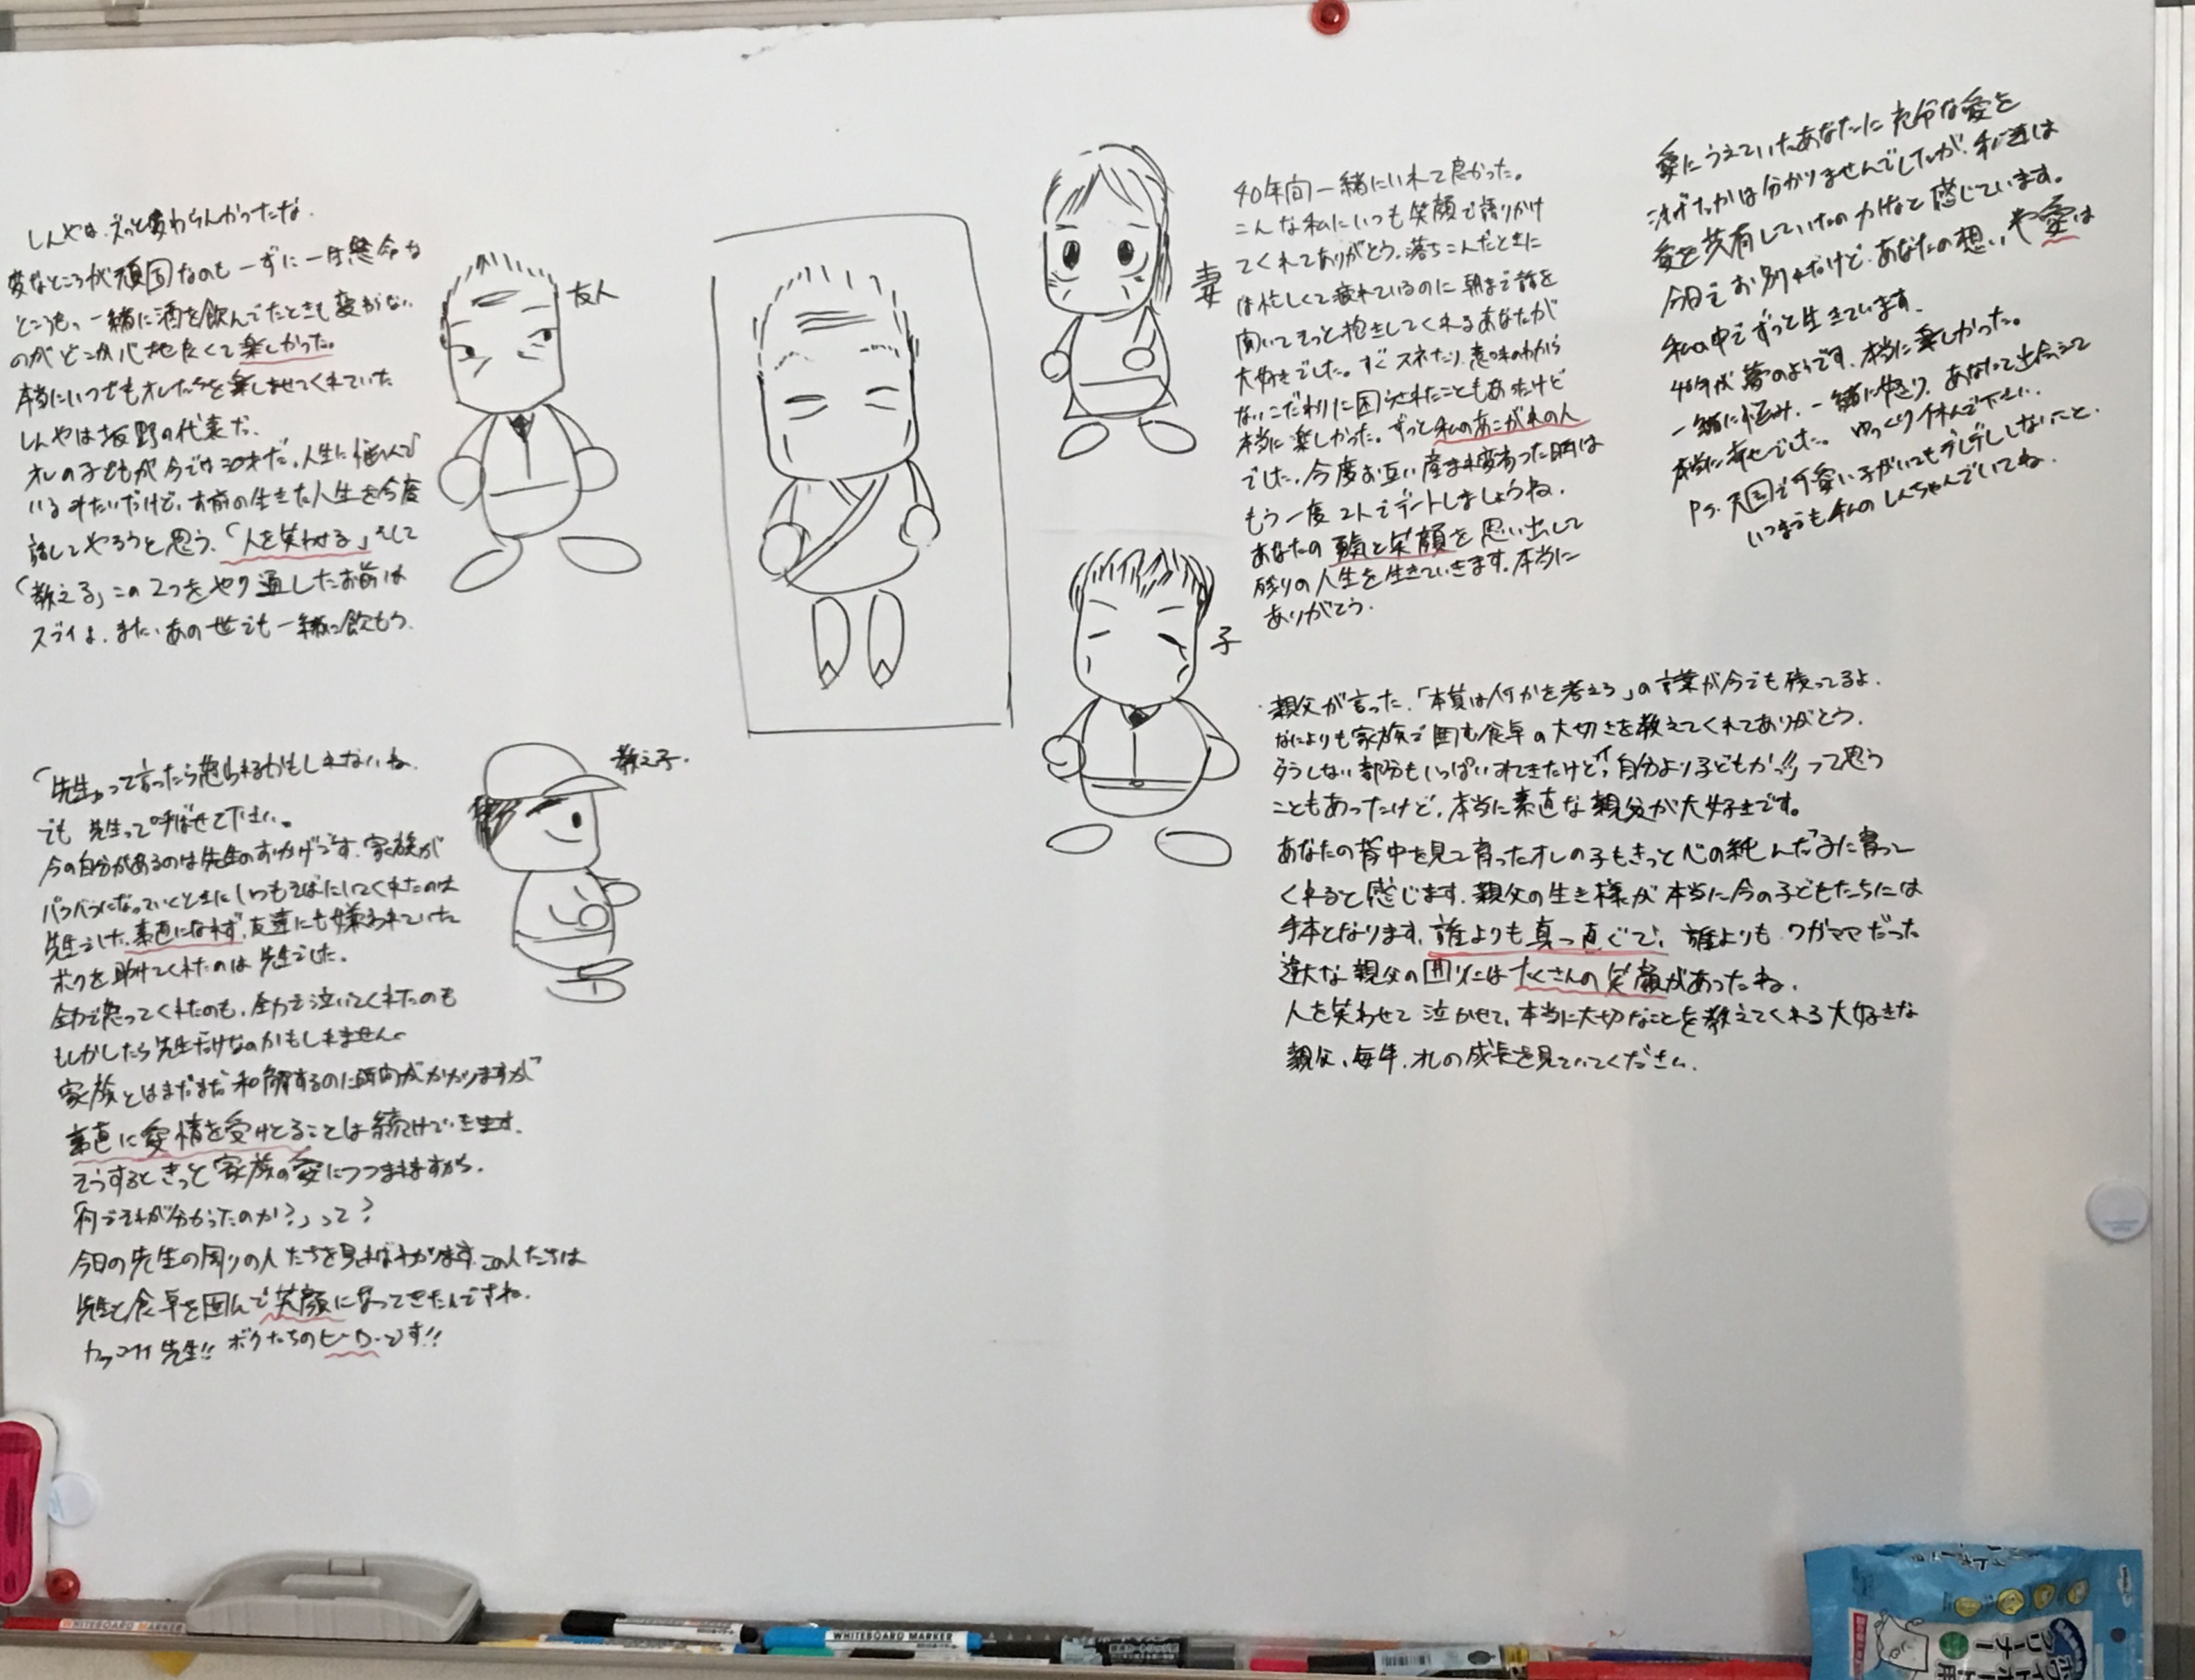 しんやは、ずっと変わらんかったな.
変なところが頑固なのも一ずに一生懸命な
ところも、一緒に酒を飲んでたときも変わらない
のがどこか心地良くて楽しかった。
本当にいつもオレたちを楽しませてくれていた
しんやは坂野の代表だ.
オレの子どもが今では30才だ.人生に悩んで
いるみたいだけど、お前の生きた人生を今度
話してやろうと思う.「人を笑わせる」そして
「教える」この2つをやり通したお前は
スゴイよ.また、あの世でも一緒に飲もう.
友人
妻
40年間一緒にいれて良かった。
こんな私にいつも笑顔で語りかけ
てくれてありがとう.落ちこんだときに
は忙しくて疲れているのに朝まで話を
聞いてそっと抱きしてくれるあなたが
大好きでした。すぐスネたり、意味のわから
ないこだわりに困らされたこともあったけど
本当に楽しかった。ずっと私のあこがれの人
でした.今度お互い産まれ変わった時は
もう一度2人でデートしましょうね.
あなたの勇気と笑顔を思い出して
残りの人生を生きていきます.本当に
ありがとう.
愛にうえていたあなたに充分な愛を
注げたかは分かりませんでしたが、私達は
愛を共有していたのかなと感じています。
今日でお別れだけど、あなたの想いや愛は
私の中でずっと生きています.
40年が夢のようです.本当に楽しかった。
一緒に悩み、一緒に怒り、あなたと出会えて
本当に幸せでした。ゆっくり休んで下さい.
P.S.天国で可愛い子がいてもデレデレしないこと.
いつまでも私のしんちゃんでいてね.
子
親父が言った.「本質は何かを考えろ」の言葉が今でも残ってるよ.
なによりも家族で囲む食卓の大切さを教えてくれてありがとう.
だらしない部分もいっぱいみてきたけど、"自分より子どもかっ!!"って思う
こともあったけど、本当に素直な親父が大好きです。
あなたの背中を見て育ったオレの子もきっと心の純んだ子に育って
くれると感じます.親父の生き様が本当に今の子どもたちには
手本となります.誰よりも真っ直ぐで、誰よりもワガママだった
遠大な親父の囲りにはたくさんの笑顔があったね.
人を笑わせて泣かせて、本当に大切なことを教えてくれる大好きな
親父、毎年、オレの成長を見ていてください.
教え子.
「先生」って言ったら怒られるかもしれないね.
でも先生って呼ばせて下さい。
今の自分があるのは先生のおかげです.家族が
バラバラになっていくときにいつもそばにしてくれたのは
先生でした.素直になれず、友達にも嫌われていた
ボクを助けてくれたのは先生でした.
全力で怒ってくれたのも、全力で泣いてくれたのも
もしかしたら先生だけなのかもしれません
家族とはまだまだ和解するのに時間がかかりますが
素直に愛情を受けとることは続けていきます.
そうするときっと家族の愛につつまれますから.
「何でそれが分かったのか?」って?
今日の先生の周りの人たちを見ればわかります.この人たちは
先生と食卓を囲んで笑顔になってきたんですね.
カッコイイ先生!! ボクたちのヒーローです!!
WHITEBOARD MARKER
WHITEBOARD MARKER